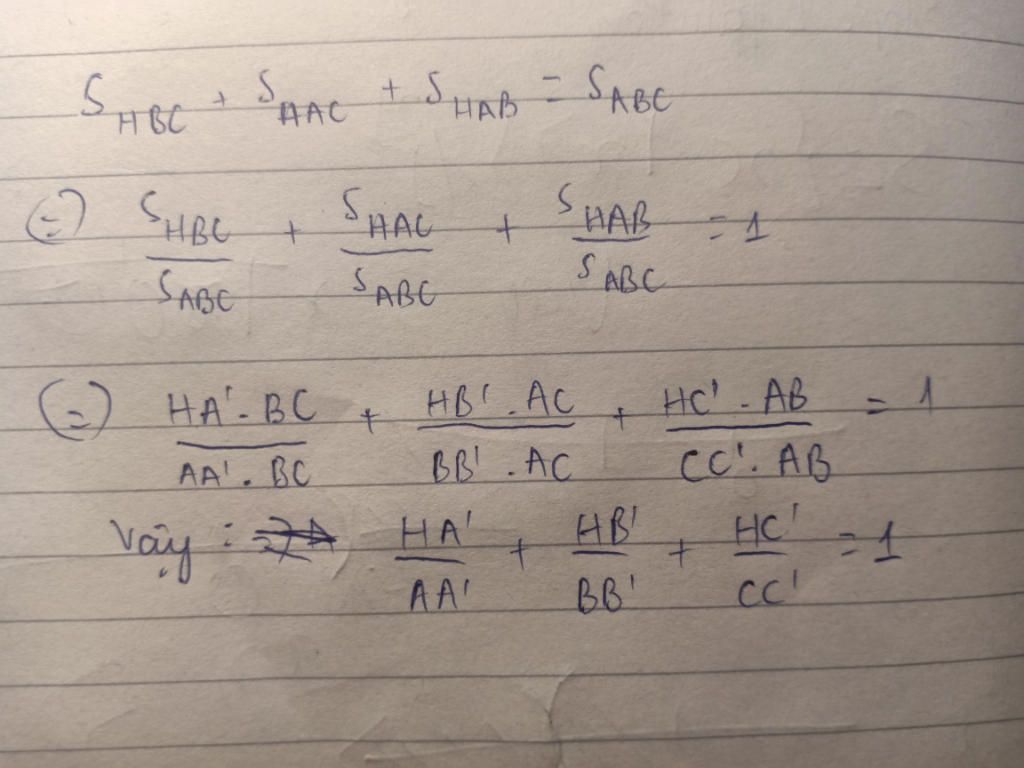 S_HBC + S_AAC + S_HAB = S_ABC
(=) S_HBC/S_ABC + S_HAC/S_ABC + S_HAB/S_ABC = 1
(=) HA'.BC/AA'.BC + HB'.AC/BB'.AC + HC'.AB/CC'.AB = 1
Vậy : HA'/AA' + HB'/BB' + HC'/CC' = 1